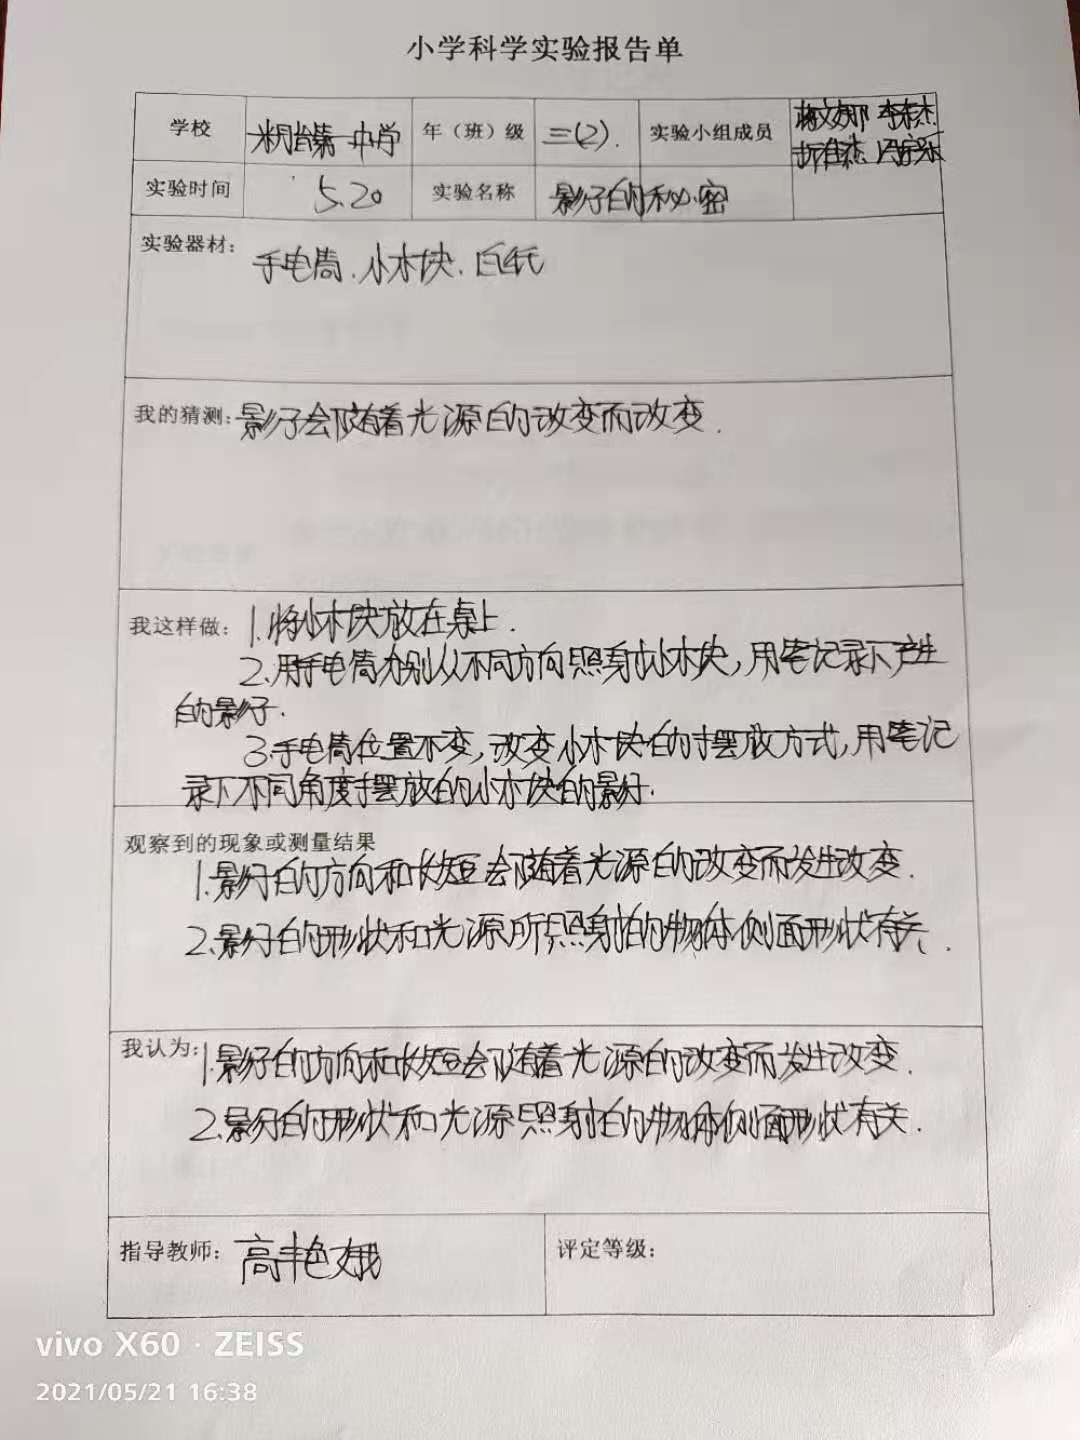 小学科学实验报告单
学校 第一中学 年（班）级 三(2). 实验小组成员
实验时间 5.20 实验名称 影子的秘密
实验器材: 手电筒、小木块、白纸
我的猜测: 影子会随着光源的改变而改变.
我这样做: 1.将小木块放在桌上.
2.用手电筒分别从不同方向照射小木块,用笔记录下产生
的影子.
3.手电筒位置不变,改变小木块的摆放方式,用笔记
录下不同角度摆放的小木块的影子.
观察到的现象或测量结果
1.影子的方向和长短会随着光源的改变而发生改变.
2.影子的形状和光源所照射的物体侧面形状有关.
我认为: 1.影子的方向和长短会随着光源的改变而发生改变.
2.影子的形状和光源照射的物体侧面形状有关.
指导教师: 高艳娥 评定等级:
vivo X60 · ZEISS
2021/05/21 16:38